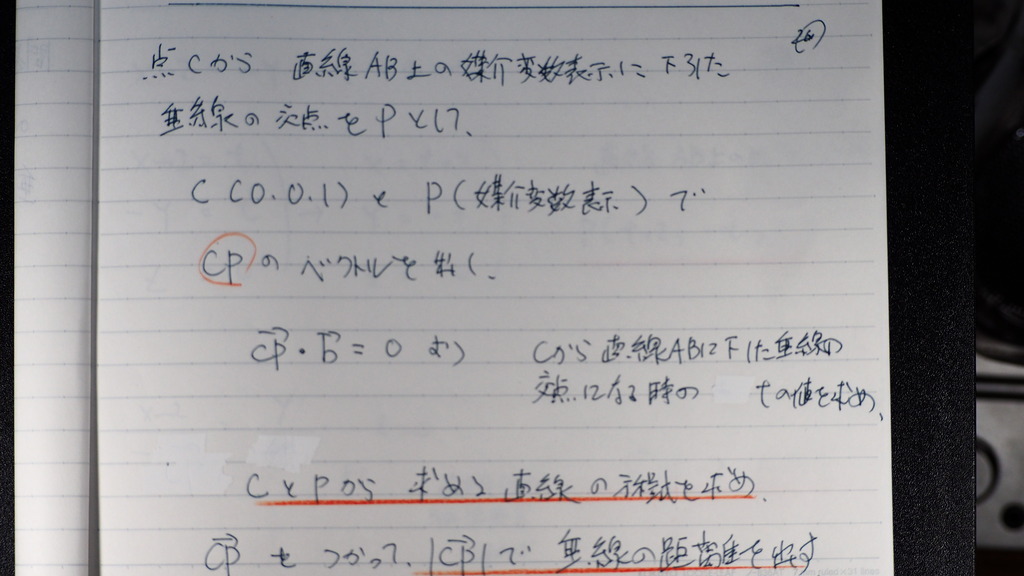 点Cから 直線AB上の媒介変数表示に下ろした
垂線の交点をPとして、
C(0.0.1)と P(媒介変数表示)で
CPのベクトルを出し、
CP・b=0 より Cから直線ABに下した垂線の
交点になる時の tの値を求め、
CとPから 求める直線の方程式を求め、
CP をつかって、|CP|で 垂線の距離を出す